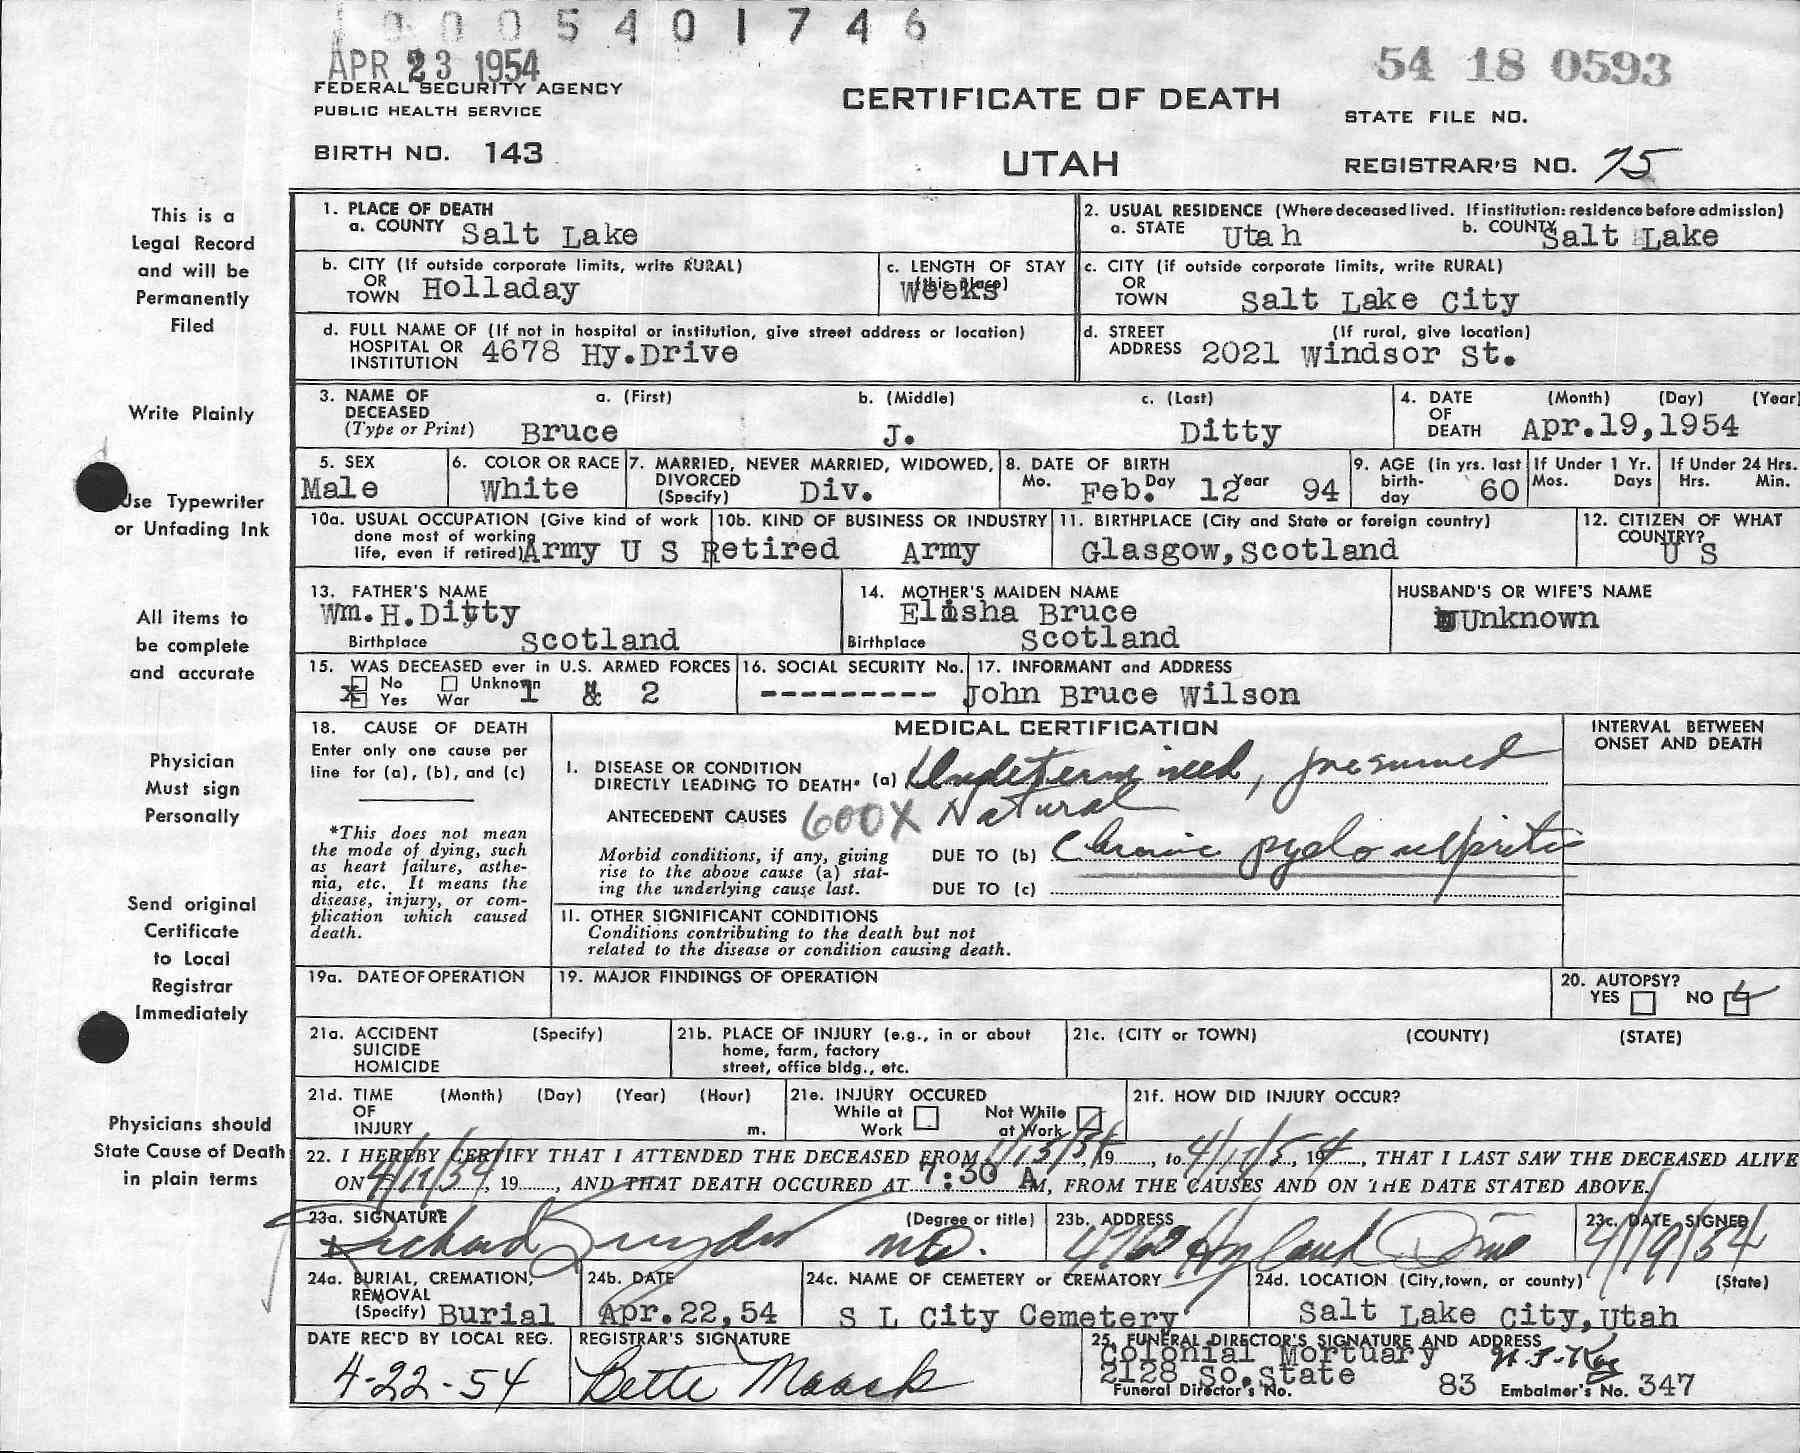 1 0 0 0 5 4 0 1 7 4 6
APR 23 1954
54 18 0593
FEDERAL SECURITY AGENCY
PUBLIC HEALTH SERVICE
CERTIFICATE OF DEATH
STATE FILE NO.
BIRTH NO. 143
UTAH
REGISTRAR'S NO. 75
This is a
Legal Record
and will be
Permanently
Filed
Write Plainly
Use Typewriter
or Unfading Ink
All items to
be complete
and accurate
Physician
Must sign
Personally
Send original
Certificate
to Local
Registrar
Immediately
Physicians should
State Cause of Death
in plain terms
1. PLACE OF DEATH
a. COUNTY Salt Lake
2. USUAL RESIDENCE (Where deceased lived. If institution: residence before admission)
a. STATE Utah b. COUNTY Salt Lake
b. CITY (If outside corporate limits, write RURAL)
OR
TOWN Holladay
c. LENGTH OF STAY
(this place)
Weeks
c. CITY (if outside corporate limits, write RURAL)
OR
TOWN Salt Lake City
d. FULL NAME OF (If not in hospital or institution, give street address or location)
HOSPITAL OR
INSTITUTION 4678 Hy.Drive
d. STREET (If rural, give location)
ADDRESS 2021 Windsor St.
3. NAME OF a. (First) b. (Middle) c. (Last)
DECEASED
(Type or Print) Bruce J. Ditty
4. DATE (Month) (Day) (Year)
OF
DEATH Apr.19,1954
5. SEX
Male
6. COLOR OR RACE
White
7. MARRIED, NEVER MARRIED, WIDOWED,
DIVORCED
(Specify) Div.
8. DATE OF BIRTH
Mo. Day Year
Feb. 12 94
9. AGE (in yrs. last
birth-
day 60
If Under 1 Yr.
Mos. Days
If Under 24 Hrs.
Hrs. Min.
10a. USUAL OCCUPATION (Give kind of work
done most of working
life, even if retired) Army U S Retired
10b. KIND OF BUSINESS OR INDUSTRY
Army
11. BIRTHPLACE (City and State or foreign country)
Glasgow,Scotland
12. CITIZEN OF WHAT
COUNTRY?
U S
13. FATHER'S NAME
Wm.H.Ditty
Birthplace Scotland
14. MOTHER'S MAIDEN NAME
Elisha Bruce
Birthplace Scotland
HUSBAND'S OR WIFE'S NAME
Unknown
15. WAS DECEASED ever in U.S. ARMED FORCES
No Unknown
x Yes War 1 & 2
16. SOCIAL SECURITY No.
---------
17. INFORMANT and ADDRESS
John Bruce Wilson
18. CAUSE OF DEATH
Enter only one cause per
line for (a), (b), and (c)
*This does not mean
the mode of dying, such
as heart failure, asthe-
nia, etc. It means the
disease, injury, or com-
plication which caused
death.
MEDICAL CERTIFICATION
INTERVAL BETWEEN
ONSET AND DEATH
I. DISEASE OR CONDITION
DIRECTLY LEADING TO DEATH* (a) Undetermined, presumed
ANTECEDENT CAUSES 600X Natural
Morbid conditions, if any, giving
rise to the above cause (a) stat-
ing the underlying cause last.
DUE TO (b) Chronic pyelo nephritis
DUE TO (c)
II. OTHER SIGNIFICANT CONDITIONS
Conditions contributing to the death but not
related to the disease or condition causing death.
19a. DATE OF OPERATION
19. MAJOR FINDINGS OF OPERATION
20. AUTOPSY?
YES NO
21a. ACCIDENT (Specify)
SUICIDE
HOMICIDE
21b. PLACE OF INJURY (e.g., in or about
home, farm, factory
street, office bldg., etc.
21c. (CITY or TOWN) (COUNTY) (STATE)
21d. TIME (Month) (Day) (Year) (Hour)
OF
INJURY m.
21e. INJURY OCCURED
While at Not While
Work at Work
21f. HOW DID INJURY OCCUR?
22. I HEREBY CERTIFY THAT I ATTENDED THE DECEASED FROM , 19 , to , 19 , THAT I LAST SAW THE DECEASED ALIVE
ON , 19 , AND THAT DEATH OCCURED AT 7:30 A M, FROM THE CAUSES AND ON THE DATE STATED ABOVE.
23a. SIGNATURE (Degree or title)
Richard Snyder MD.
23b. ADDRESS
4760 Hyland Drive
23c. DATE SIGNED
4/19/54
24a. BURIAL, CREMATION,
REMOVAL
(Specify) Burial
24b. DATE
Apr.22,54
24c. NAME OF CEMETERY or CREMATORY
S L City Cemetery
24d. LOCATION (City,town, or county) (State)
Salt Lake City,Utah
DATE REC'D BY LOCAL REG.
4-22-54
REGISTRAR'S SIGNATURE
Bette Maack
25. FUNERAL DIRECTOR'S SIGNATURE AND ADDRESS
Colonial Mortuary
2128 So.State
Funeral Director's No. 83 Embalmer's No. 347